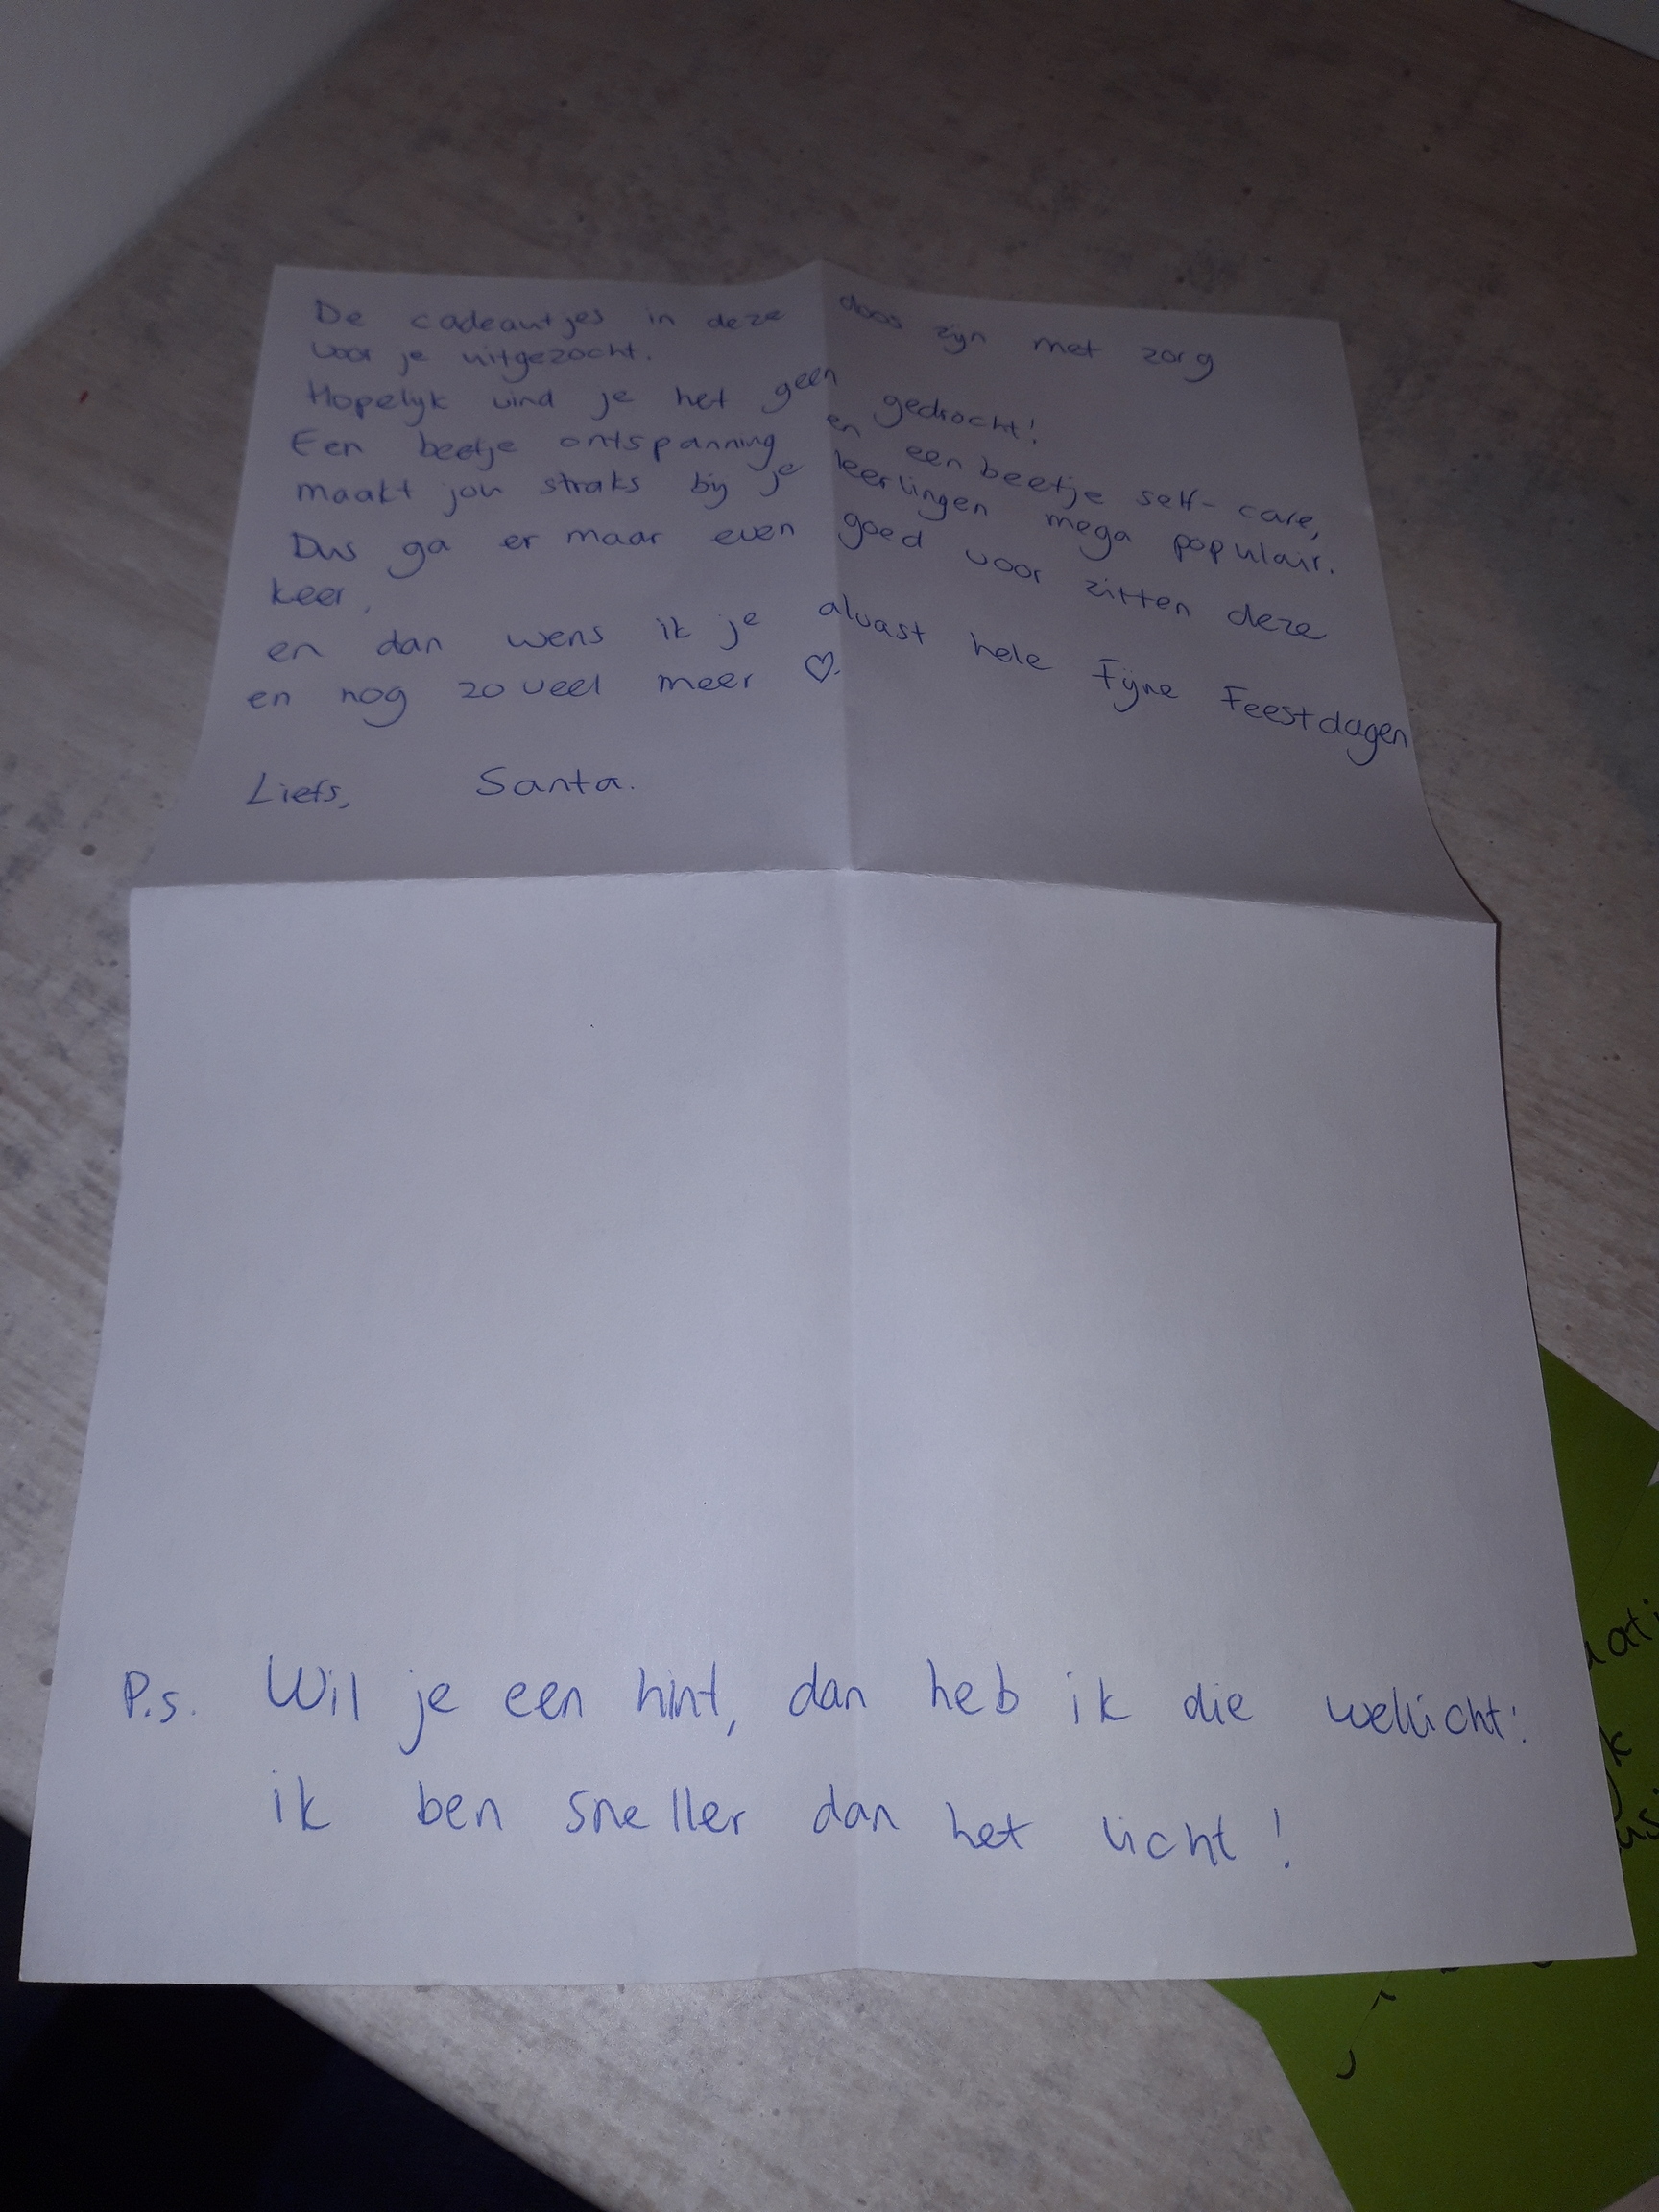 De cadeautjes in deze doos zijn met zorg
voor je uitgezocht.
Hopelijk vind je het geen gedrocht!
Een beetje ontspanning en een beetje self-care,
maakt jou straks bij je leerlingen mega populair.
Dus ga er maar even goed voor zitten deze
keer,
en dan wens ik je alvast hele fijne feestdagen
en nog zoveel meer ♡.
Liefs, Santa.
P.s. Wil je een hint, dan heb ik die wellicht:
ik ben sneller dan het licht!